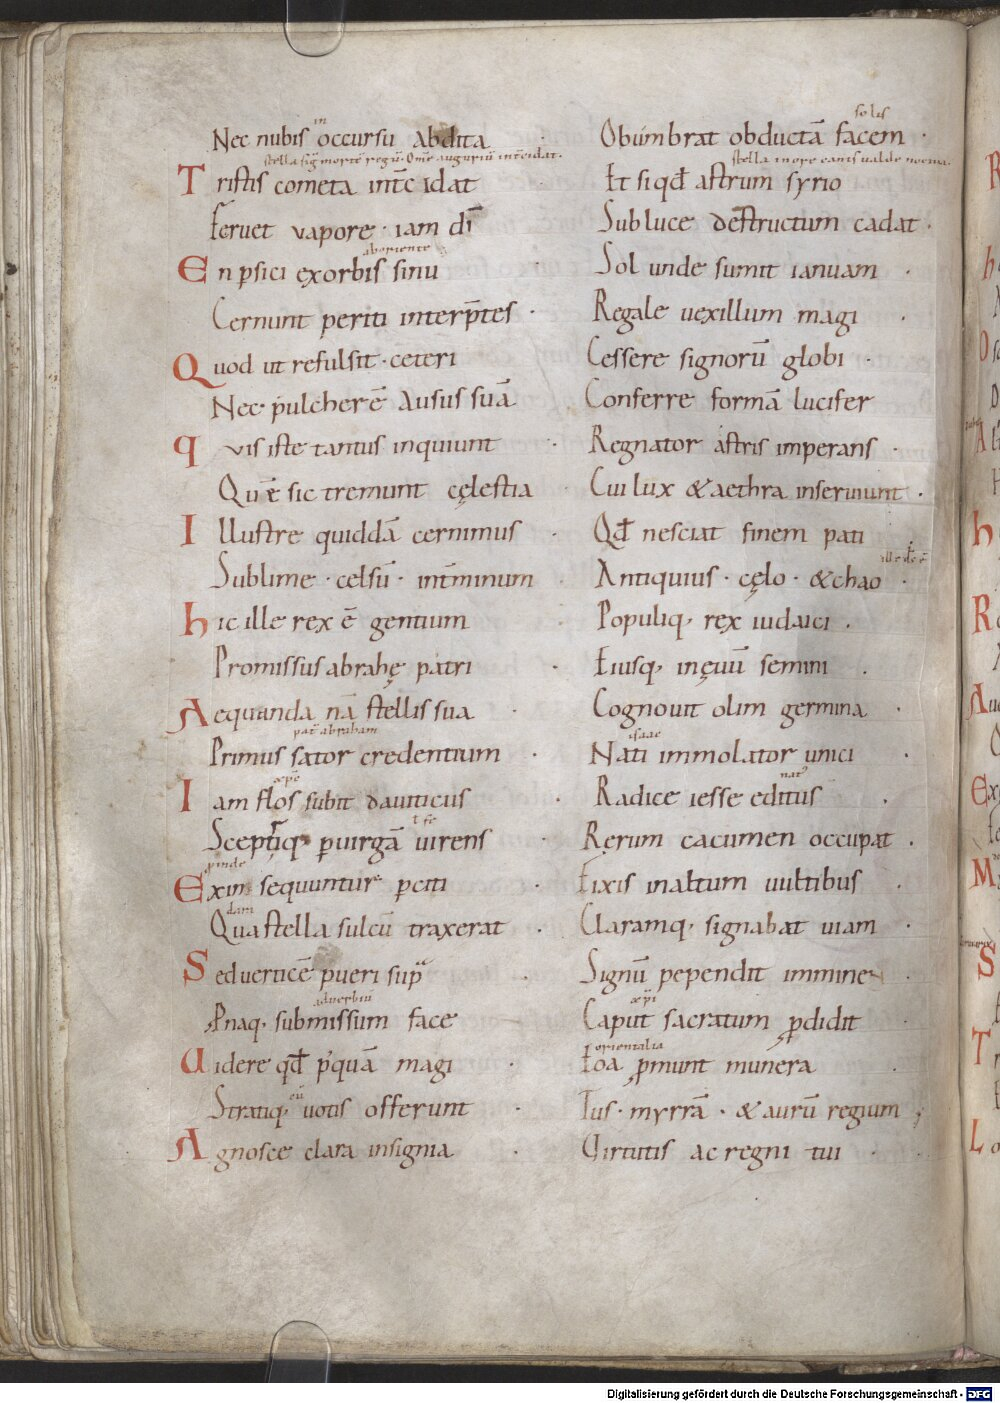 in solis
Nec nubis occursu abdita · Obumbrat obductā facem ·
stella sigᷓ mortē regū · Om̄e auguriū int̄cidat · stella in ore canis ualde noxia
Tristis cometa int̄cidat Et si qđ astrum syrio
Feruet vapore · iam dī Sub luce destructum cadat ·
ab oriente
En psici exorbis sinu · Sol unde sumit ianuam ·
Cernunt periti interp̄tes · Regale uexillum magi ·
Quod ut refulsit · ceteri Cessere signorū globi ·
Nec pulcher ē Ausus suā Conferre formā lucifer
quis iste tantus inquiunt · Regnator astris imperans ·
Qui sic tremunt cęlestia · Cui lux & aethra inseruiunt ·
Illustre quiddā cernimus · Qđ nesciat finem pati
ille dē ē
Sublime · celsū · int̄minum · Antiquius · cęlo · & chao ·
hic ille rex ē gentium · Populiq, rex iudaici ·
Promissus abrahę patri · Eiusq, in ęuū semini ·
Aequanda nā stellis sua · Cognouit olim germina ·
pat̄ abraham isaac
Primus sator credentium · Nati immolator unici ·
nat᷒
Iam flos subit dauiticus · Radice iesse editus ·
Sceptriq, p uirgā uirens · Rerum cacumen occupat ·
pinde
Exin sequuntur pciti · Fixis inaltum uultibus ·
Qua stella sulcū traxerat · Claramq, signabat uiam ·
Sed uerticē pueri supͣ · Signū pependit imminens ·
aduerbiū
Pnaq, submissum face Caput sacratum pdidit ·
orientalia
Uidere qđ pquā magi · Eoa pmunt munera ·
eū
Stratiq, uotis offerunt · Tus · myrrā · & aurū regium
Agnosce clara insignia · Uirtutis ac regni tui ·
Digitalisierung gefördert durch die Deutsche Forschungsgemeinschaft - DFG